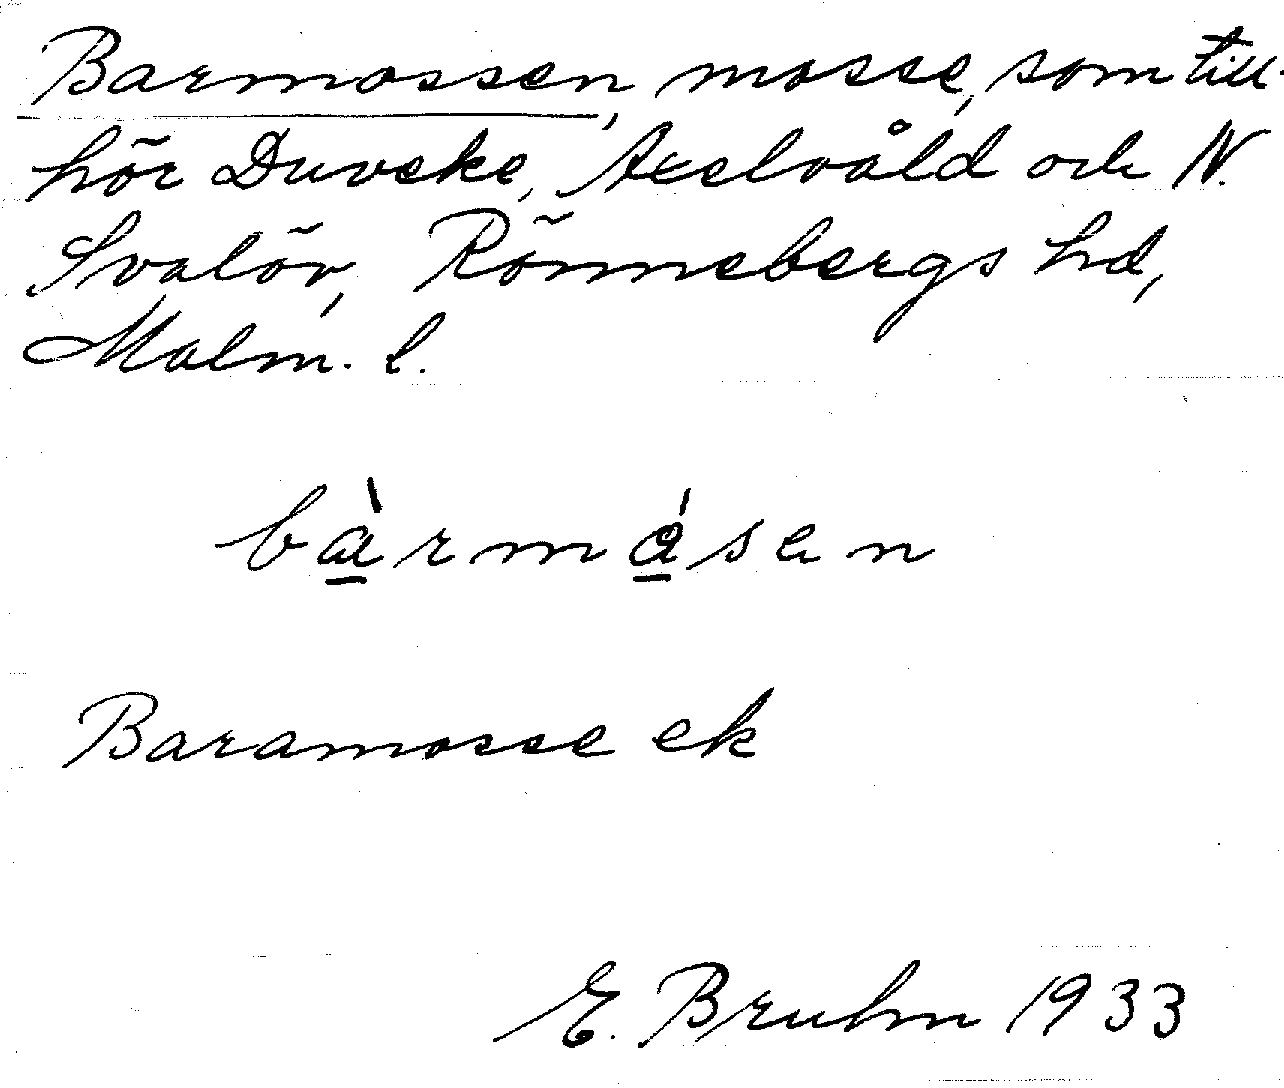 Barmossen, mosse, som till-
hör Duveke, Axelvåld och N.
Svalöv, Rönnebergs hd,
Malm. l.
bàrmásen
Baramosse ek
E. Bruhn 1933